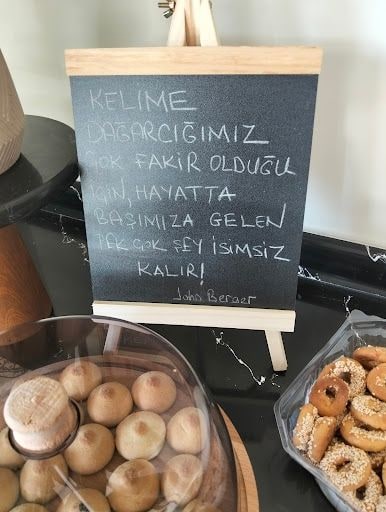 KELİME
DAĞARCIĞIMIZ
ÇOK FAKİR OLDUĞU
İÇİN, HAYATTA
BAŞIMIZA GELEN
PEK ÇOK ŞEY İSİMSİZ
KALIR!
John Berger